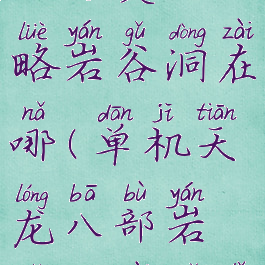 lüè yán gǔ dòng zài
略岩谷洞在
nǎ dān jī tiān
哪(单机天
lóng bā bù yán
龙八部岩